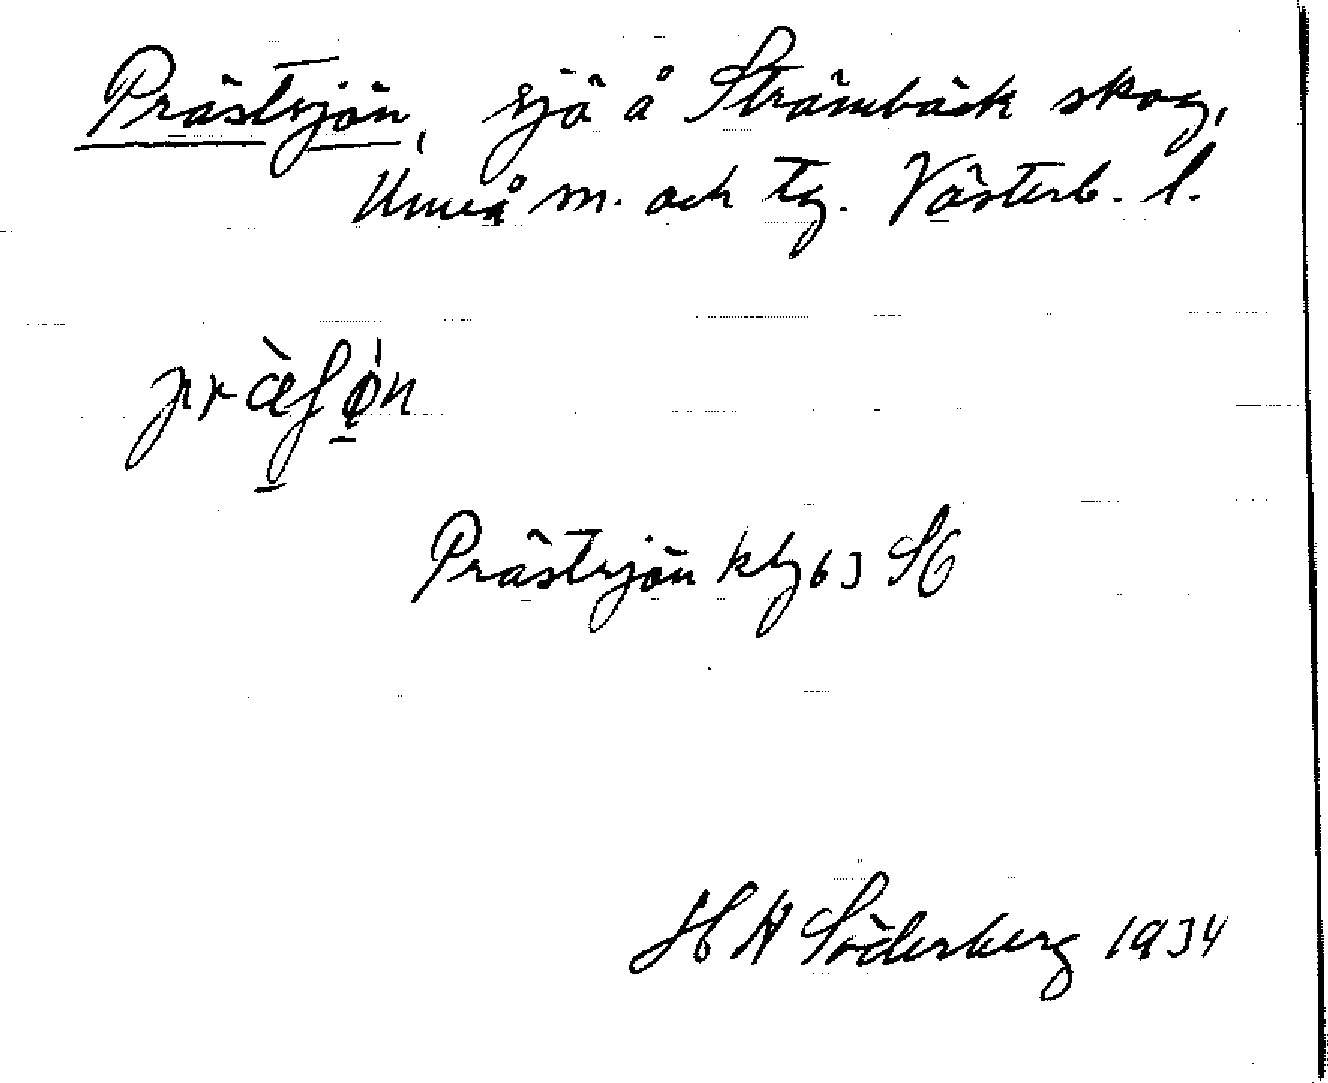 Prästsjön, sjö å Strömbäck skog,
Umeå m. och tg. Västerb. l.
præ̀ʃø̀n
Prästsjön kbg 63 SC
H W Söderberg 1934